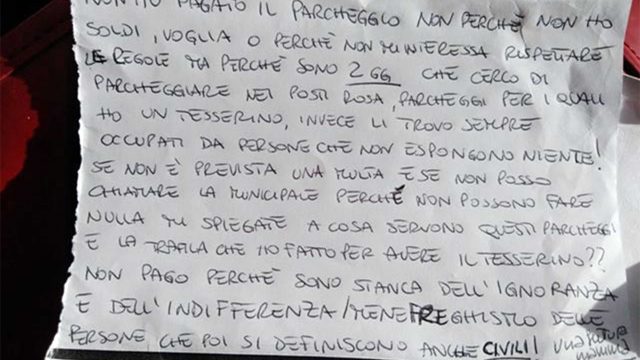 NON HO PAGATO IL PARCHEGGIO NON PERCHÈ NON HO
SOLDI, VOGLIA O PERCHÈ NON MI INTERESSA RISPETTARE
LE REGOLE MA PERCHÈ SONO 2 GG CHE CERCO DI
PARCHEGGIARE NEI POSTI ROSA, PARCHEGGI PER I QUALI
HO UN TESSERINO, INVECE LI TROVO SEMPRE
OCCUPATI DA PERSONE CHE NON ESPONGONO NIENTE!
SE NON È PREVISTA UNA MULTA E SE NON POSSO
CHIAMARE LA MUNICIPALE PERCHÉ NON POSSONO FARE
NULLA MI SPIEGATE A COSA SERVONO QUESTI PARCHEGGI
E LA TRAFILA CHE HO FATTO PER AVERE IL TESSERINO??
NON PAGO PERCHÈ SONO STANCA DELL'IGNORANZA
E DELL'INDIFFERENZA/MENEFREGHISMO DELLE
PERSONE, CHE POI SI DEFINISCONO ANCHE CIVILI! UNA FUTURA
MAMMA